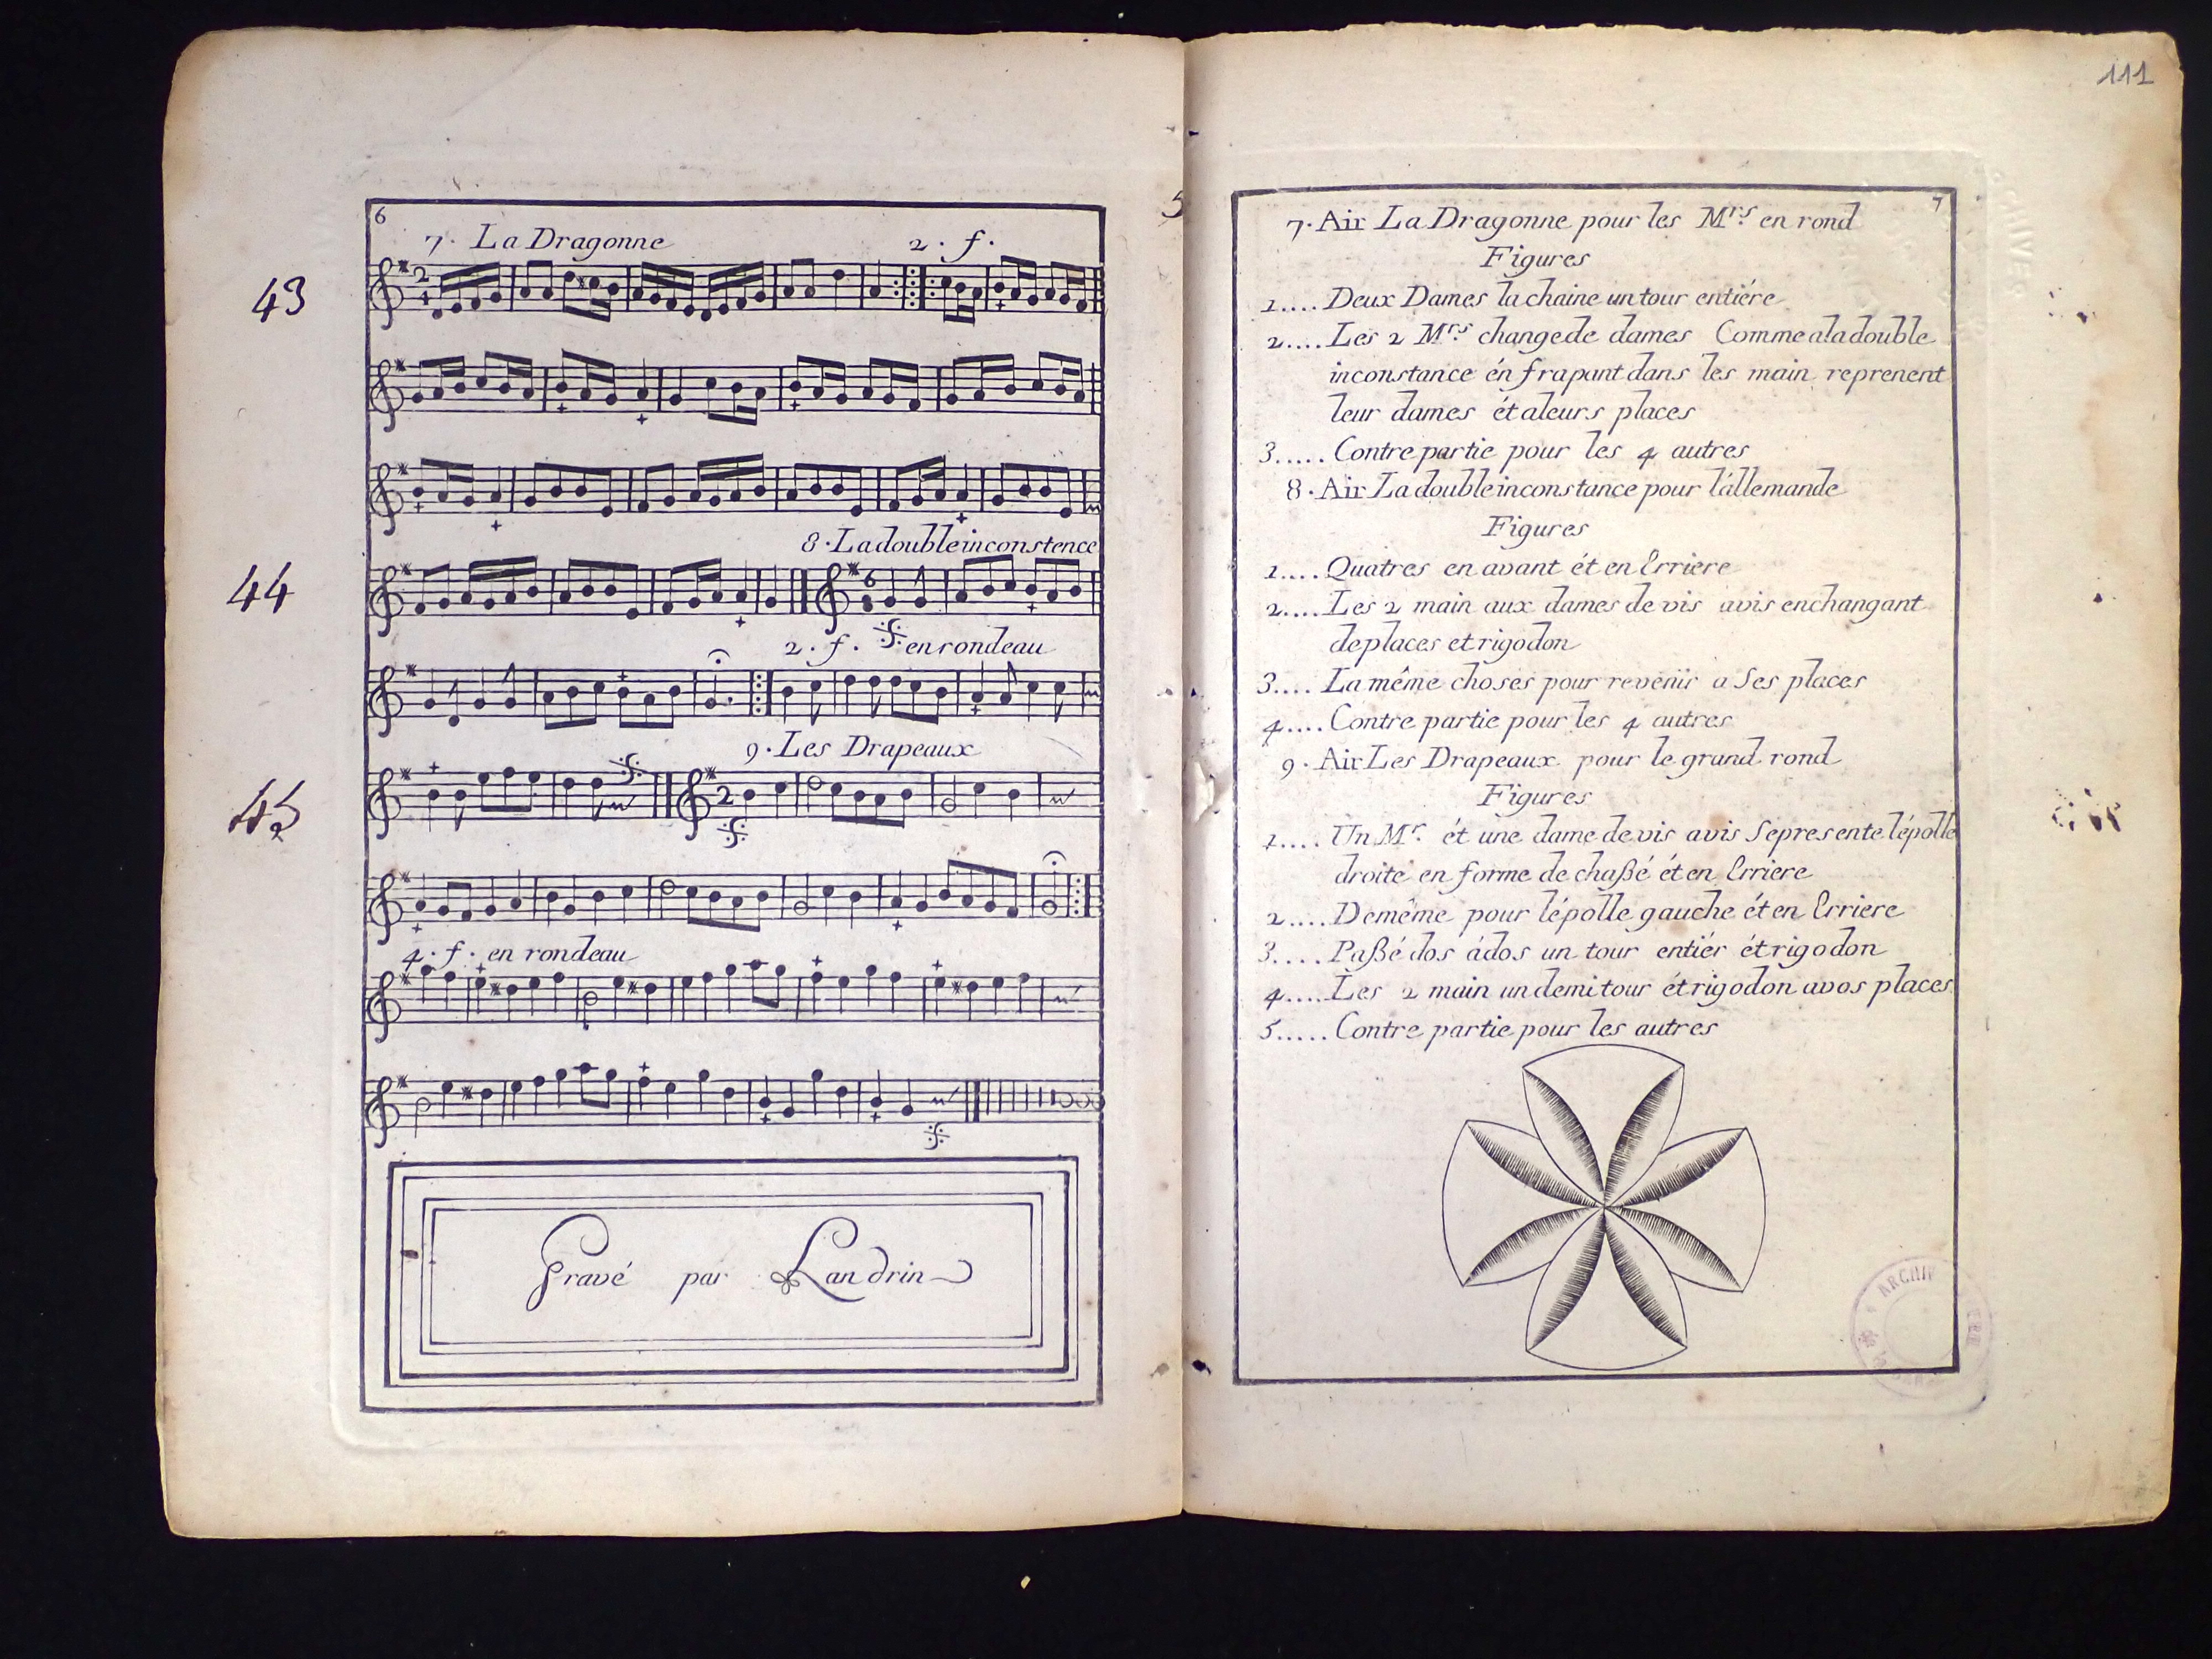 6
7. La Dragonne 2. f.
43
8. La double inconstence
44
2. f. en rondeau
9. Les Drapeaux
45
4. f. en rondeau
Gravé par Landrin
111
7
7. Air La Dragonne pour les Mrs. en rond
Figures
1.... Deux Dames la chaine un tour entiére
2.... Les 2 Mrs. change de dames Comme a la double
inconstance én frapant dans les main reprenent
leur dames ét a leurs places
3..... Contre partie pour les 4 autres
8. Air La double inconstance pour l'állemande
Figures
1.... Quatres en avant ét en Erriere
2.... Les 2 main aux dames de vis avis en changant
de places et rigodon
3.... La même choses pour revenir a Ses places
4.... Contre partie pour les 4 autres
9. Air Les Drapeaux pour le grand rond
Figures
1.... Un Mr. ét une dame de vis avis Se presente l'épolle
droite en forme de chaßé ét en Erriere
2.... De même pour l'épolle gauche ét en Erriere
3.... Paßé dos ádos un tour entiér ét rigodon
4.... Les 2 main un demi tour ét rigodon avos places
5..... Contre partie pour les autres